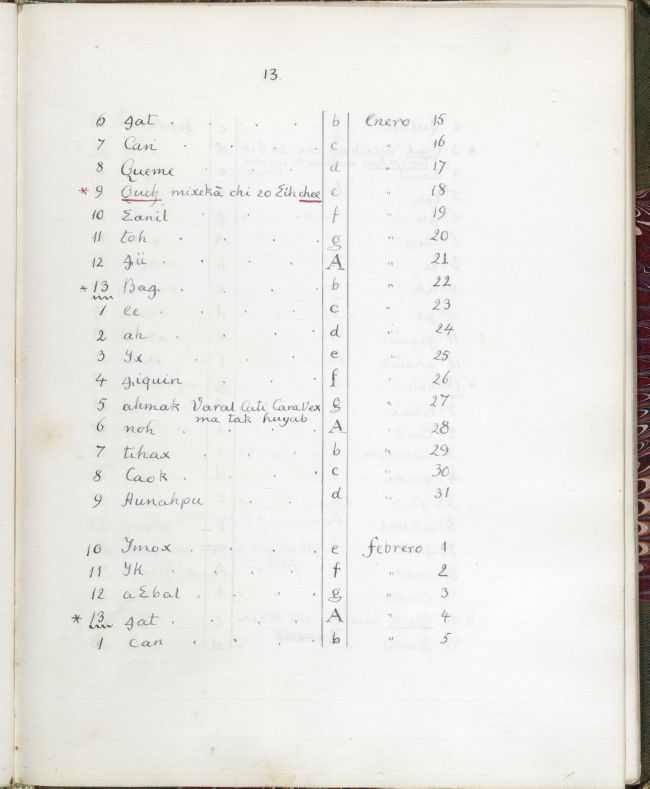 13.
6 gat . . . . b Enero 15
7 Can . . . . c " 16
8 Queme . . . d " 17
* 9 Queh mixekā chi 20 Eihchee e " 18
10 Eanil . . . f " 19
11 toh . . . . g " 20
12 gii . . . . A " 21
* 13 Bag. . . . b " 22
1 ee . . . . c " 23
2 ah . . . . d " 24
3 Yx . . . . e " 25
4 giquin . . . f " 26
5 ahmak Varal Cati CaraVex g " 27
ma tak huyab
6 noh . . . . A " 28
7 tihax . . . b " 29
8 Caok . . . . c " 30
9 Hunahpu . . d " 31
10 Ymox . . . . e febrero 1
11 Yk . . . . f " 2
12 aEbal . . . g " 3
* 13 gat . . . . A " 4
1 can . . . . b " 5